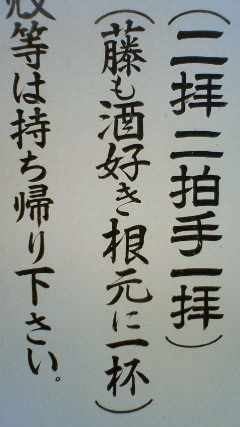 （二拝二拍手一拝）
（藤も酒好き根元に一杯）
等は持ち帰り下さい。